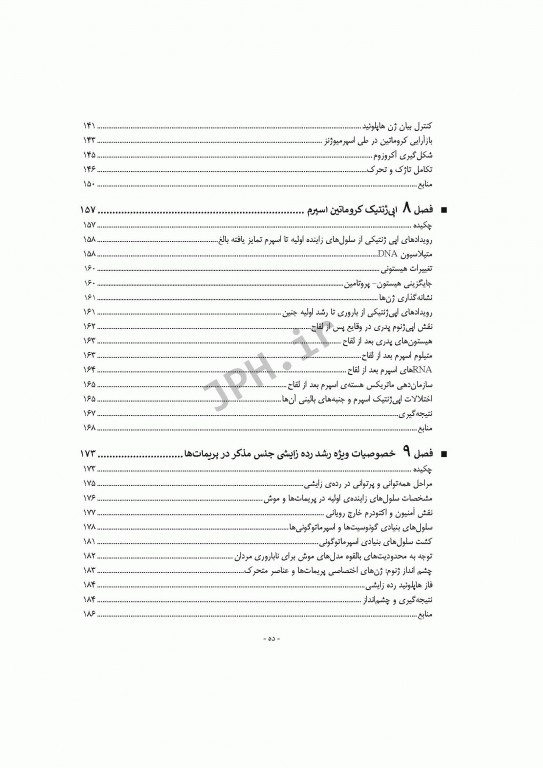 کنترل بیان ژن هاپلوئید ۱۴۱
بازآرایی کروماتین در طی اسپرمیوژنز ۱۴۳
شکل‌گیری آکروزوم ۱۴۵
تکامل تاژک و تحرک ۱۴۶
منابع ۱۵۰
■ فصل ۸ اپی‌ژنتیک کروماتین اسپرم ۱۵۷
چکیده ۱۵۷
رویدادهای اپی ژنتیکی از سلول‌های زاینده اولیه تا اسپرم تمایز یافته بالغ ۱۵۸
متیلاسیون DNA ۱۵۸
تغییرات هیستونی ۱۶۰
جایگزینی هیستون- پروتامین ۱۶۰
نشانه‌گذاری ژن‌ها ۱۶۱
رویدادهای اپی‌ژنتیکی از باروری تا رشد اولیه جنین ۱۶۱
نقش اپی‌ژنوم پدری در وقایع پس از لقاح ۱۶۲
هیستون‌های پدری بعد از لقاح ۱۶۳
متیلوم اسپرم بعد از لقاح ۱۶۳
RNAهای اسپرم بعد از لقاح ۱۶۴
سازمان‌دهی ماتریکس هسته‌ی اسپرم بعد از لقاح ۱۶۵
اختلالات اپی‌ژنتیک اسپرم و جنبه‌های بالینی آن‌ها ۱۶۵
نتیجه‌گیری ۱۶۷
منابع ۱۶۸
■ فصل ۹ خصوصیات ویژه رشد رده زایشی جنس مذکر در پریمات‌ها ۱۷۳
چکیده ۱۷۳
مراحل همه‌توانی و پرتوانی در رده‌ی زایشی ۱۷۵
مشخصات سلول‌های زاینده‌ی اولیه در پریمات‌ها و موش ۱۷۶
نقش آمنیون و اکتودرم خارج رویانی ۱۷۷
سلول‌های بنیادی گونوسیت‌ها و اسپرماتوگونی‌ها ۱۷۸
کشت سلول‌های بنیادی اسپرماتوگونی ۱۸۱
توجه به محدودیت‌های بالقوه مدل‌های موش برای ناباروری مردان ۱۸۲
چشم انداز ژنوم: ژن‌های اختصاصی پریمات‌ها و عناصر متحرک ۱۸۳
فاز هاپلوئید رده زایشی ۱۸۴
نتیجه‌گیری و چشم‌انداز ۱۸۴
منابع ۱۸۶
- ده -
JPH.ir